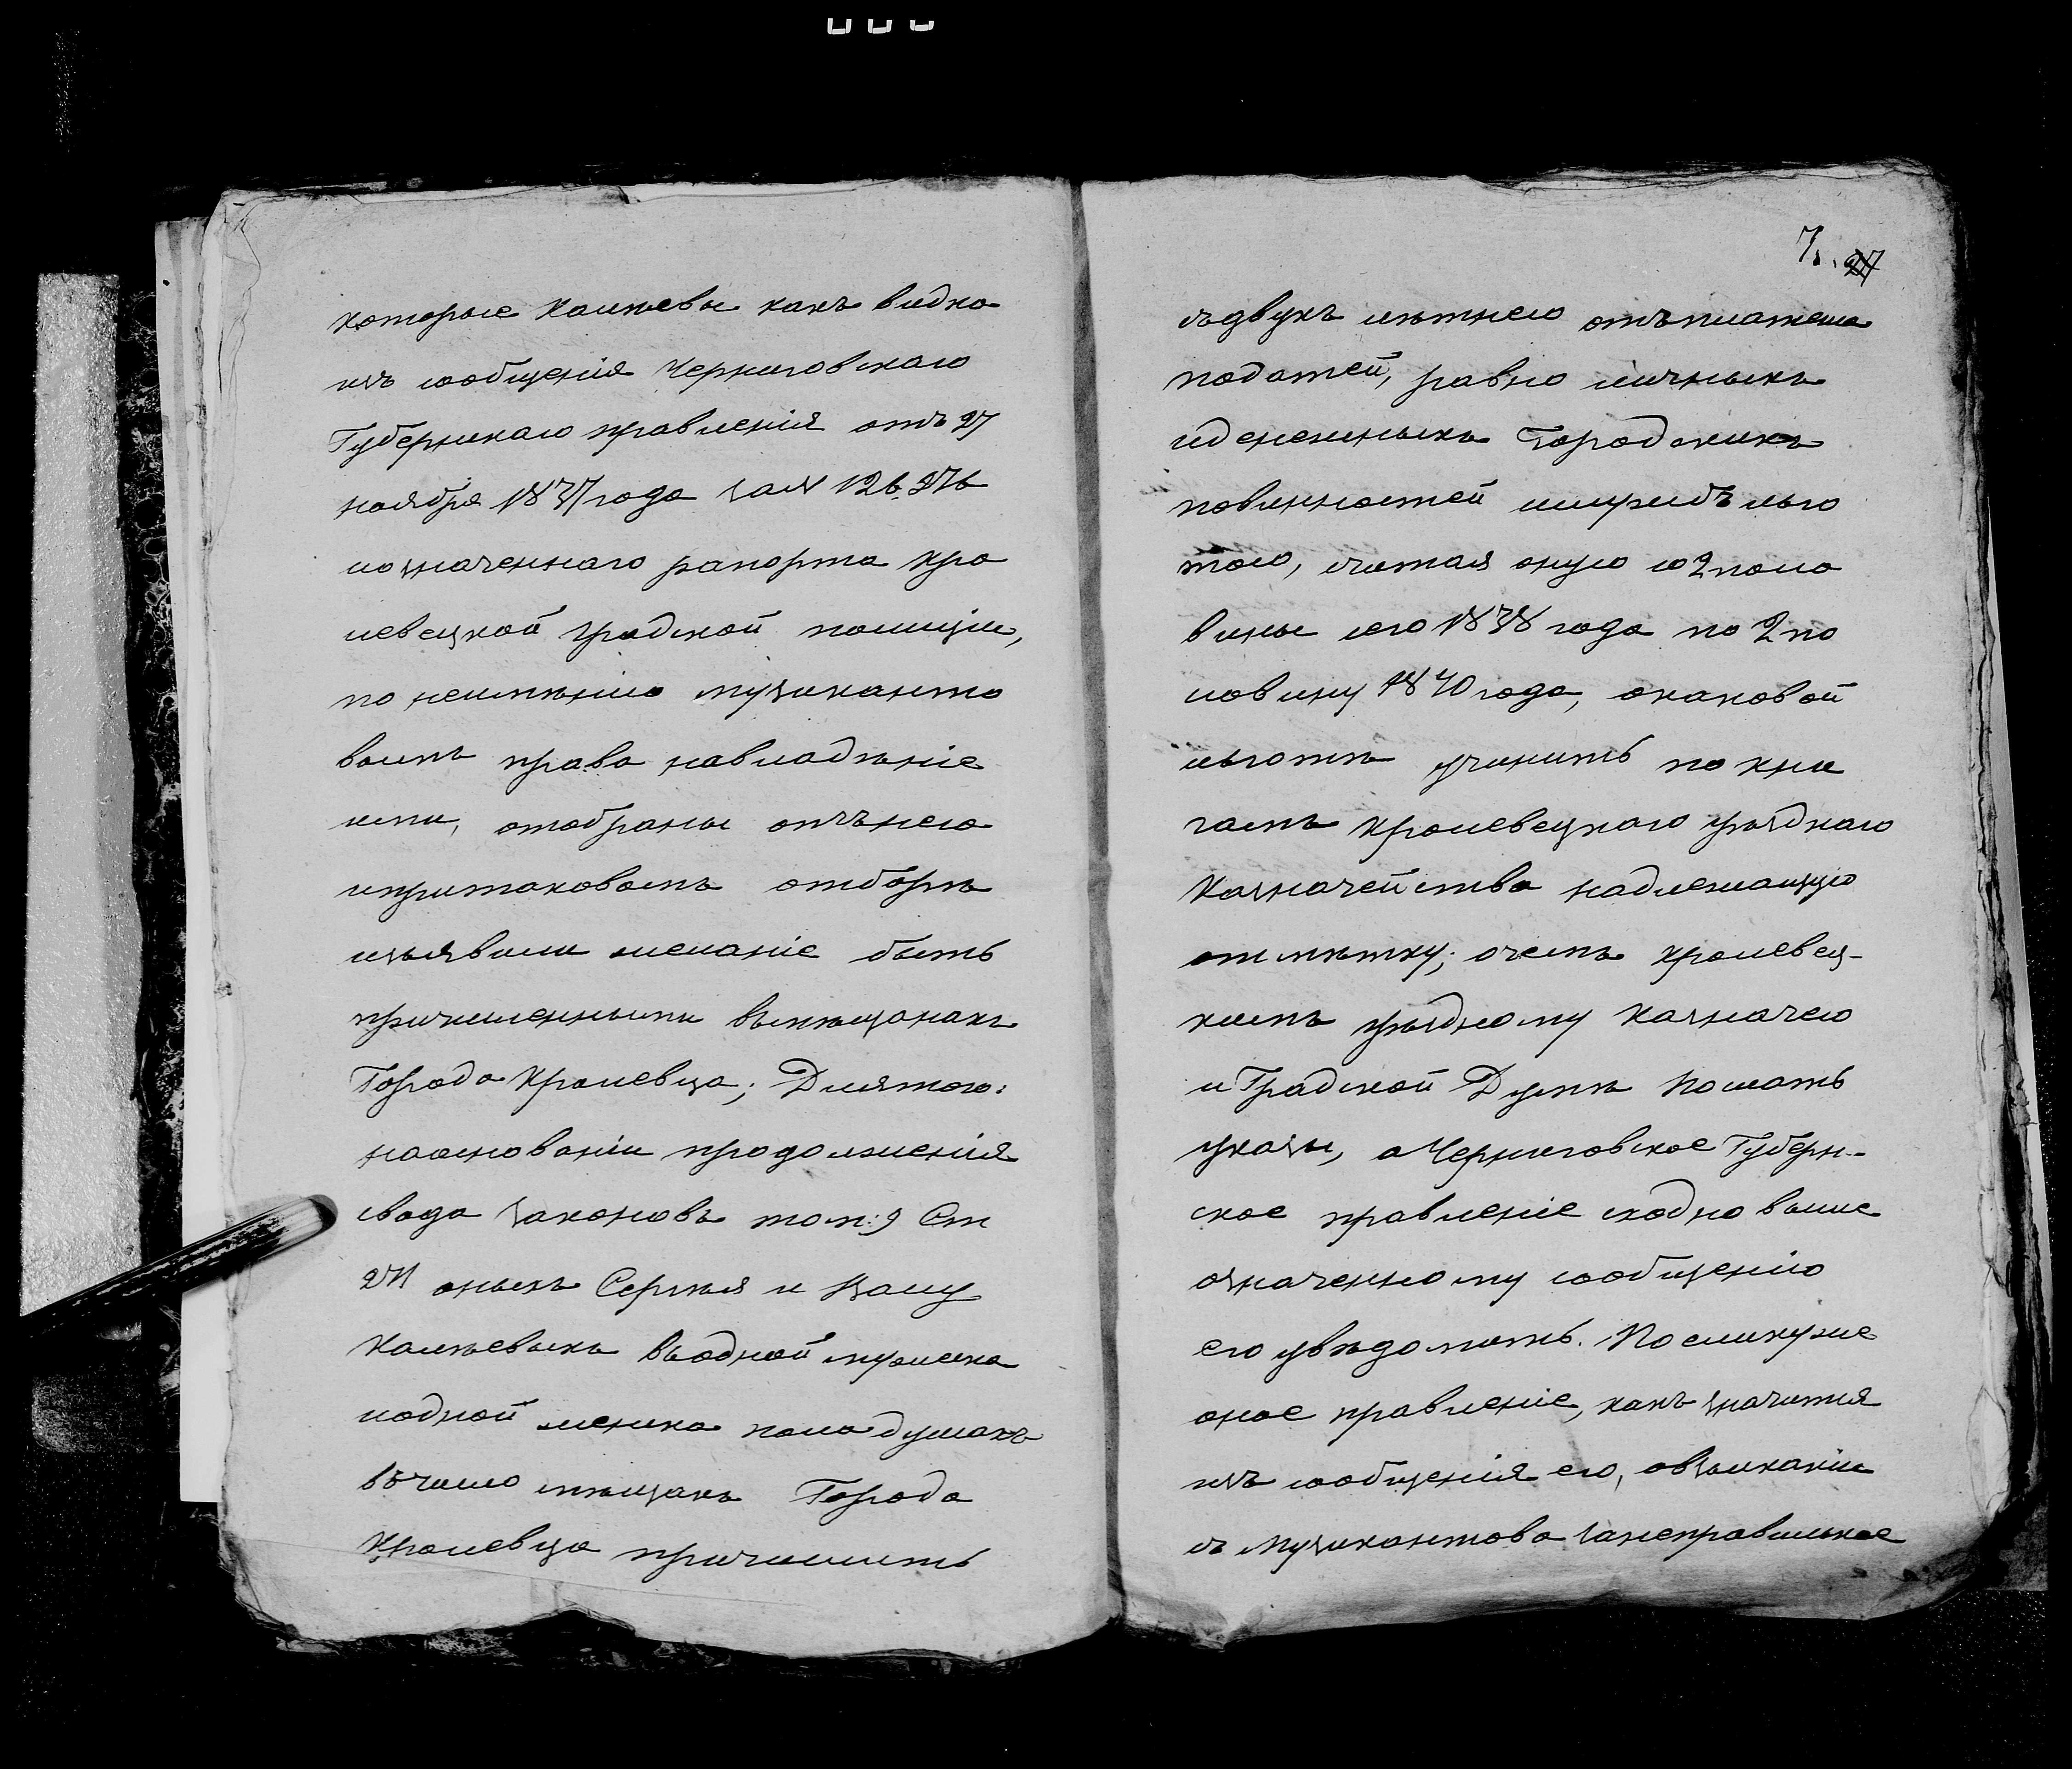 которые Калневы какъ видно
изъ сообщенія Черниговскаго
Губернскаго правленія отъ 27
ноября 1837 года за №
и означеннаго рапорта Кро
левецкой градской полиціи,
по неимѣнію музиканто
вымъ права навладѣніе
ими, отобраны отънего
ипритаковомъ отборѣ
изъявили желаніе быть
причисленными вмѣщанахъ
Города Кролевца; Длятого:
наосновании продолженія
свода законовъ том: 9 Ст
271 оныхъ Сергѣя и
Калнѣевыхъ Водной мужска
иодной женска пола душахъ
въчисло мѣщанъ Города
Кролевца причислить
7. 27
съдвухъ лѣтнею отъплатежа
податей, равно личныхъ
иденежныхъ Городскихъ
повинностей льго
тою, считая оную со 2 поло
вины сего 1838 года по 2 по
ловину 1840 года, окаковой
льготѣ учинить по кни
гамъ Кролевецкаго уѣзднаго
Казначейства надлежащую
отмѣтку; очемъ Кролевец-
кимъ уѣздному Казначею
и Градской Думѣ Послать
указы, аЧерниговское Губерн-
ское правленіе сходно выше
означенному сообщенію
его увѣдомить. Поеликуже
оное правленіе, какъ значится
изъ сообщенія его, овзысканіи
съ Музикантова занеправильное